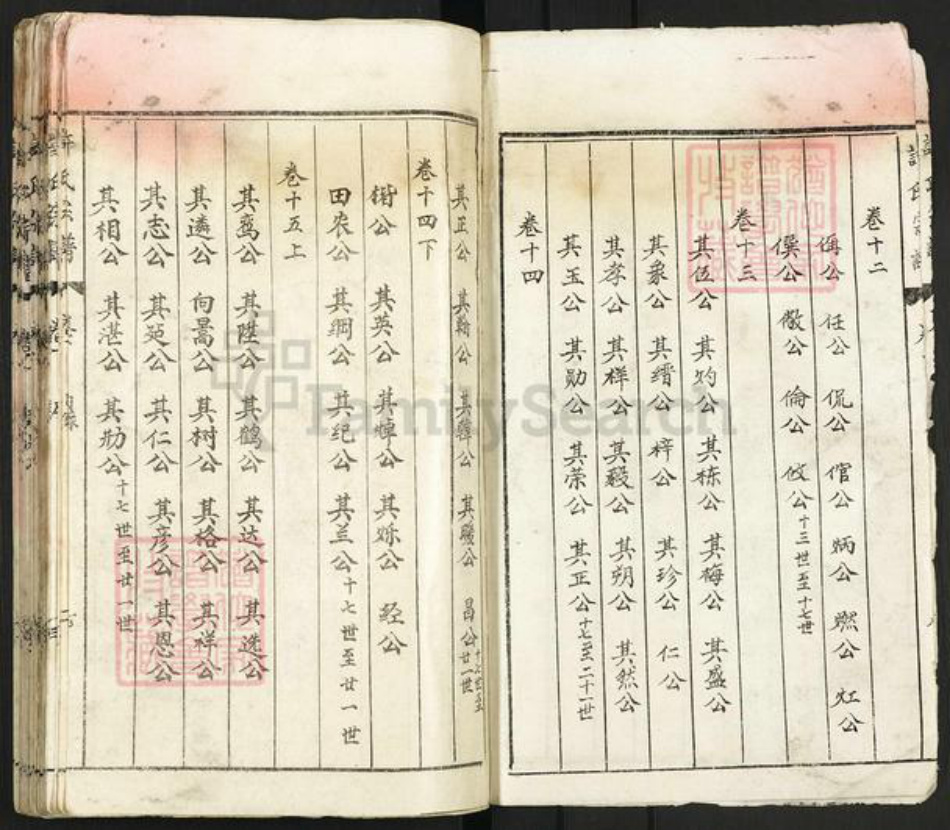 卷十二
侮公 任公 侃公 倌公 炳公 燃公 灴公
僎公 儆公 倫公 攸公 十三世至十七世
卷十三
其伍公 其灼公 其栋公 其梅公 其盛公
其象公 其缙公 梓公 其珍公 仁公
其孝公 其样公 其毅公 其朔公 其然公
其玉公 其勋公 其荣公 其正公 十七至二十一世
卷十四
其正公 其翰公 其公 其公 昌公 十七世至廿一世
卷十四下
公 其英公 其焯公 其烁公 经公
田农公 其纲公 其纪公 其兰公 十七世至廿一世
卷十五上
其鸾公 其陞公 其鹤公 其达公 其选公
其遴公 向暠公 其树公 其格公 其祥公
其志公 其延公 其仁公 其彦公 其恩公
其相公 其湛公 其劢公 十七世至廿一世
許氏宗譜 卷一 目録 二
FamilySearch